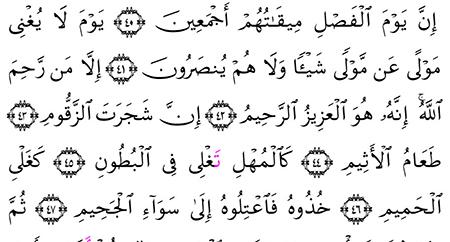 إِنَّ يَوْمَ ٱلْفَصْلِ مِيقَـٰتُهُمْ أَجْمَعِينَ ﴿٤٠﴾ يَوْمَ لَا يُغْنِى
مَوْلًى عَن مَّوْلًى شَيْـًٔا وَلَا هُمْ يُنصَرُونَ ﴿٤١﴾ إِلَّا مَن رَّحِمَ
ٱللَّهُ ۚ إِنَّهُۥ هُوَ ٱلْعَزِيزُ ٱلرَّحِيمُ ﴿٤٢﴾ إِنَّ شَجَرَتَ ٱلزَّقُّومِ ﴿٤٣﴾
طَعَامُ ٱلْأَثِيمِ ﴿٤٤﴾ كَٱلْمُهْلِ تَغْلِى فِى ٱلْبُطُونِ ﴿٤٥﴾ كَغَلْىِ
ٱلْحَمِيمِ ﴿٤٦﴾ خُذُوهُ فَٱعْتِلُوهُ إِلَىٰ سَوَآءِ ٱلْجَحِيمِ ﴿٤٧﴾ ثُمَّ